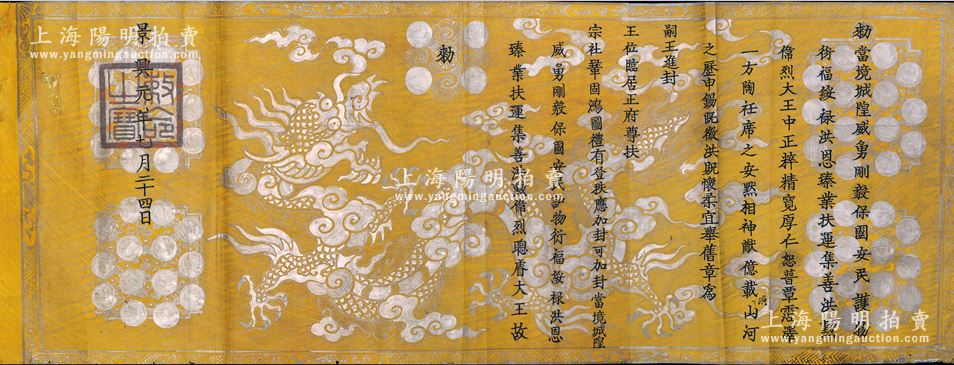 勑當境城隍威勇剛毅保國安民護物
衍福綏祿洪恩臻業扶運集善洪勳
偉烈大王中正粹精寬厚仁恕普覃霑澤
一方陶衽席之安默相神猷億載山河
之歷申錫既徵洪貺懷柔宜舉舊章為
嗣王進封
王位臨居正府尊扶
宗社鞏固鴻圖禮有登秩應加封可加封當境城隍
威勇剛毅保國安民護物衍福綏祿洪恩
臻業扶運集善洪勳偉烈聰睿大王故
勑
景興年七月二十四日
敕命之寶
上海陽明拍賣
www.yangmingauction.com
上海陽明拍賣
www.yangmingauction.com
上海陽明拍賣
www.yangmingauction.com
上海陽明拍賣
www.yangmingauction.com
上海陽明拍賣
www.yangmingauction.com